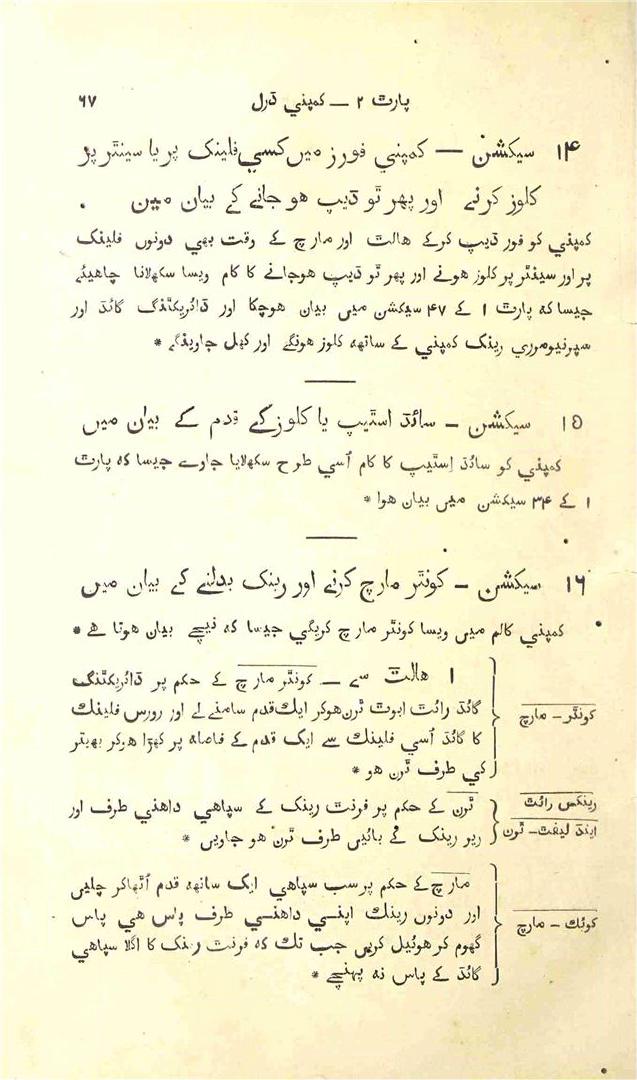 پارٹ ۲ — کمپني ڈرل ۶۷
۱۴ سیکشن — کمپني فورز میں کسي فلینک پر یا سینٹر پر
کلوز کرنے اور پھر ٹو ڈیپ ھو جانے کے بیان مین .
کمپني کو فور ڈیپ کرکے ھالٹ اور مارچ کے وقت بھي دونوں فلینک
پر اور سینٹر پر کلوز ھونے اور پھر ٹو ڈیپ ھوجانے کا کام ویسا سکھلانا چاھیئے
جیسا کہ پارٹ ۱ کے ۴۷ سیکشن میں بیان ھوچکا اور ڈائریکٹنگ گائڈ اور
سپرنیومرري رینک کمپني کے ساتھہ کلوز ھونگے اور کھل جاوینگے *
۱۵ سیکشن — سائڈ اسٹیپ یا کلوزگے قدم کے بیان میں
کمپني کو سائڈ اِسٹیپ کا کام اُسي طرح سکھلایا جاوے جیسا کہ پارٹ
۱ کے ۳۴ سیکشن میں بیان ھوا *
۱۶ سیکشن — کونٹر مارچ کرنے اور رینک بدلنے کے بیان میں
کمپني کالم میں ویسا کونٹر مارچ کریگي جیسا کہ نیچے بیان ھوتا ھے *
۱ ھالٹ سے — کونٹر مارچ کے حکم پر ڈائریکٹنگ
کونٹر — مارچ
گائڈ رائٹ ابوٹ ٹرن ھوکر ایك قدم سامنے لے اور رورس فلینك
کا گائڈ اُسي فلینك سے ایک قدم کے فاصلہ پر کھڑا ھوکر بھیتر
کي طرف ٹرن ھو *
رینکس رائٹ
اینڈ لیفٹ — ٹرن
ٹرن کے حکم پر فرنٹ رینک کے سپاھي داھني طرف اور
ریر رینک کے بائیں طرف ٹرن ھو جاویں *
کوئك — مارچ
مارچ کے حکم پر سب سپاھي ایک ساتھہ قدم اُٹھاکر چلیں
اور دونوں رینك اپنے داھنے طرف پاس ھي پاس
گھوم کر ھوئیل کریں جب تك کہ فرنٹ رینک کا اگلا سپاھي
گائڈ کے پاس نہ پہنچے *